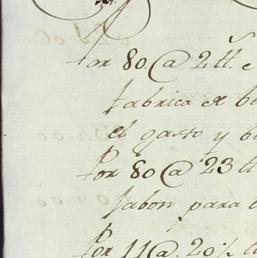 Por 80 @ 2 lt.
fabrica de
el gasto y
Por 80 @ 23 lt
Jabon para
Por 11 @ 20½ lt